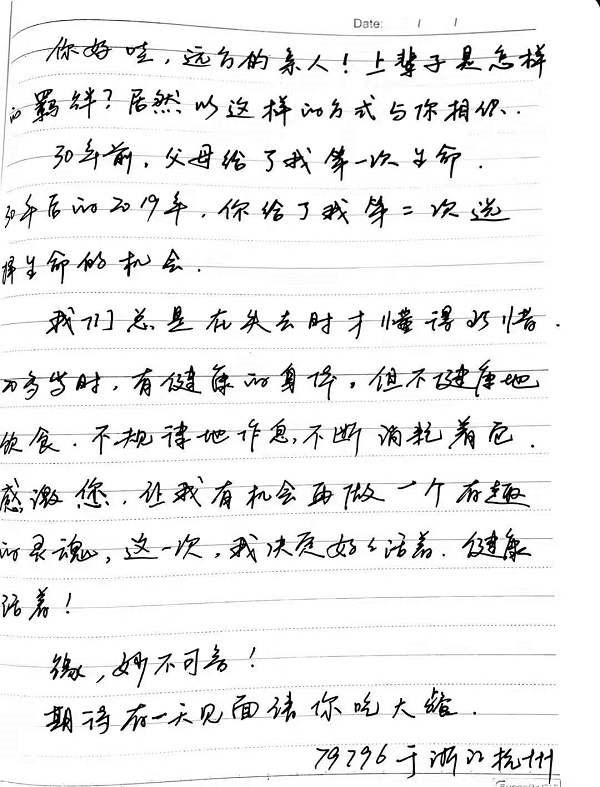 Date: / /
你好哇，远方的亲人！上辈子是怎样
的羁绊？居然以这样的方式与你相识.
30年前，父母给了我第一次生命.
30年后的2019年，你给了我第二次选
择生命的机会.
我们总是在失去时才懂得珍惜.
当时，有健康的身体。但不健康地
饮食.不规律地作息,不断消耗着它.
感激您.让我有机会再做一个有趣
的灵魂，这一次，我决定好好活着.健康
活着！
缘，妙不可言！
期待有一天见面请你吃大餐.
79796于浙江杭州